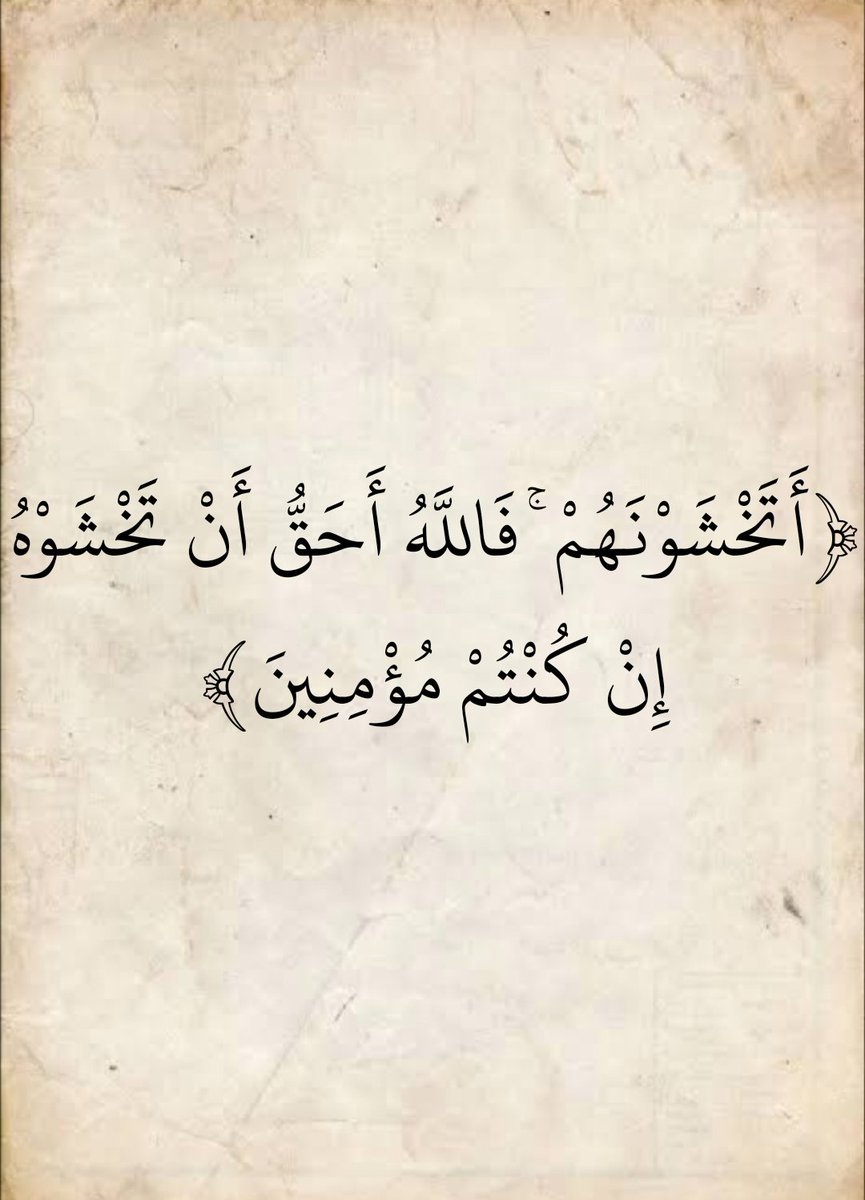 ﴿أَتَخْشَوْنَهُمْ ۚ فَاللَّهُ أَحَقُّ أَنْ تَخْشَوْهُ
إِنْ كُنْتُمْ مُؤْمِنِينَ﴾